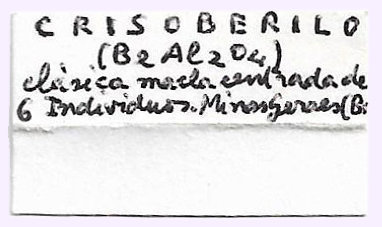 CRISOBERILO
(B2Al2O4)
clásica macla centrada de
6 Individuos. Minas Geraes (B